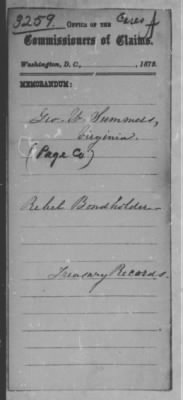 3259.
OFFICE OF THE
Commissioners of Claims.
Washington, D. C., , 1872.
MEMORANDUM:
Geo. W. Summers,
Virginia.
(Page Co)
Rebel Bondholder—
Treasury Records.